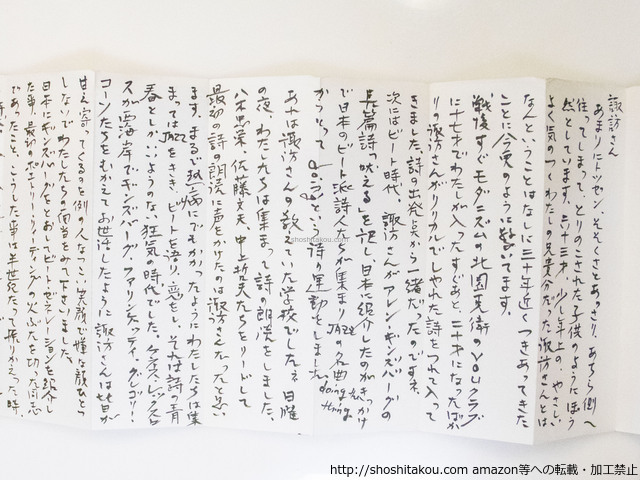 諏訪さん
あまりにトツゼン、そそくさとあっさり、あちら側へ
往ってしまって、とりのこされた子供のようにぼう
然としています。六十三才、少し年上の、やさしい
よく気のつくわたしの兄貴分だった諏訪さんとは
なんということはなしに三十年近くつきあってきた
ことに今更のように驚いてます。
戦後すぐモダニズムの北園克衛のVOUクラブ
に十七才でわたしが入ったすぐあと、二十才になったばか
りの諏訪さんがリリカルでしゃれた詩をつれて入って
きました。詩の出発点から一緒だったのですネ。
次にはビート時代、諏訪さんがアレン・ギンズバーグの
長篇詩「吠える」を訳し、日本に紹介したのがきっかけ
で日本のビート派詩人たちが集まりJAZZの名曲
かつ という詩の運動をしました。
doing thing
あれは諏訪さんの教えていた学校でしたネ。日曜
の夜、わたしたちは集まって詩の朗読をしました。
八木忠栄、佐藤文夫、中上哲夫たちをリードして
最初の詩の朗読に声をかけたのは諏訪さんだったと思い
ます。まるで熱病にでもかかったようにわたしたちは集
まってはJAZZをきき、ビートを語り、恋をし、それは詩の青
春としかいいようのない狂気の時代でした。ケネス・レックスロ
スが西海岸でギンズバーグ、ファリンゲッティ、グレゴリー・
コーソたちをかかえてお世話したように諏訪さんは皆が
甘え寄ってくるのを例の人なつこい笑顔で嫌な顔ひとつ
しないでわたしたちの面倒をみて下さいました。
日本にギンズバーグをとおしてビート・ゼネレーションを紹介し
た事、最初のポエトリー・リーディングの火ぶたを切った同志
であったこと。こうした事は半世紀たって振りかえった時、
shoshitakou.com
http://shoshitakou.com amazon等への転載・加工禁止